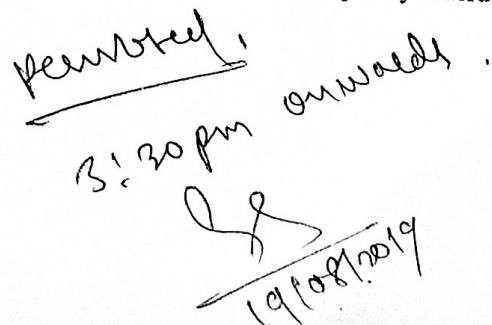 permitted.
3:30 pm onwards.
19/08/2019